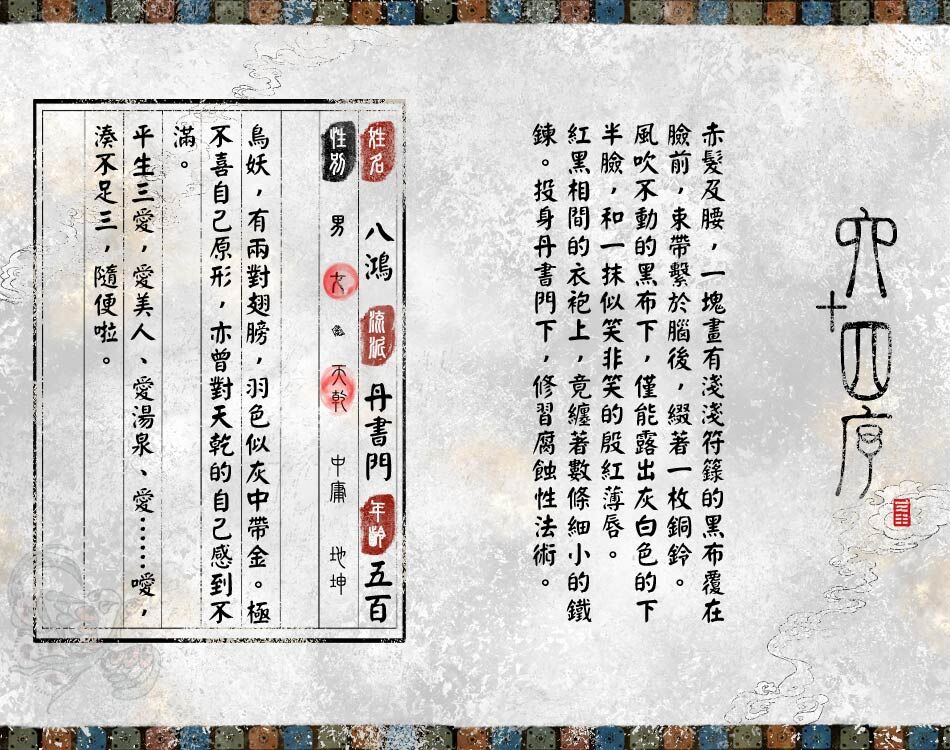 六十四序
赤髮及腰，一塊畫有淺淺符籙的黑布覆在
臉前，束帶繫於腦後，綴著一枚銅鈴。
風吹不動的黑布下，僅能露出灰白色的下
半臉，和一抹似笑非笑的殷紅薄唇。
紅黑相間的衣袍上，竟纏著數條細小的鐵
鍊。投身丹書門下，修習腐蝕性法術。
姓名 八鴻 流派 丹書門 年齡 五百
性別 男 女 天乾 中庸 地坤
鳥妖，有兩對翅膀，羽色似灰中帶金。極
不喜自己原形，亦曾對天乾的自己感到不
滿。
平生三愛，愛美人、愛湯泉、愛……噯，
湊不足三，隨便啦。